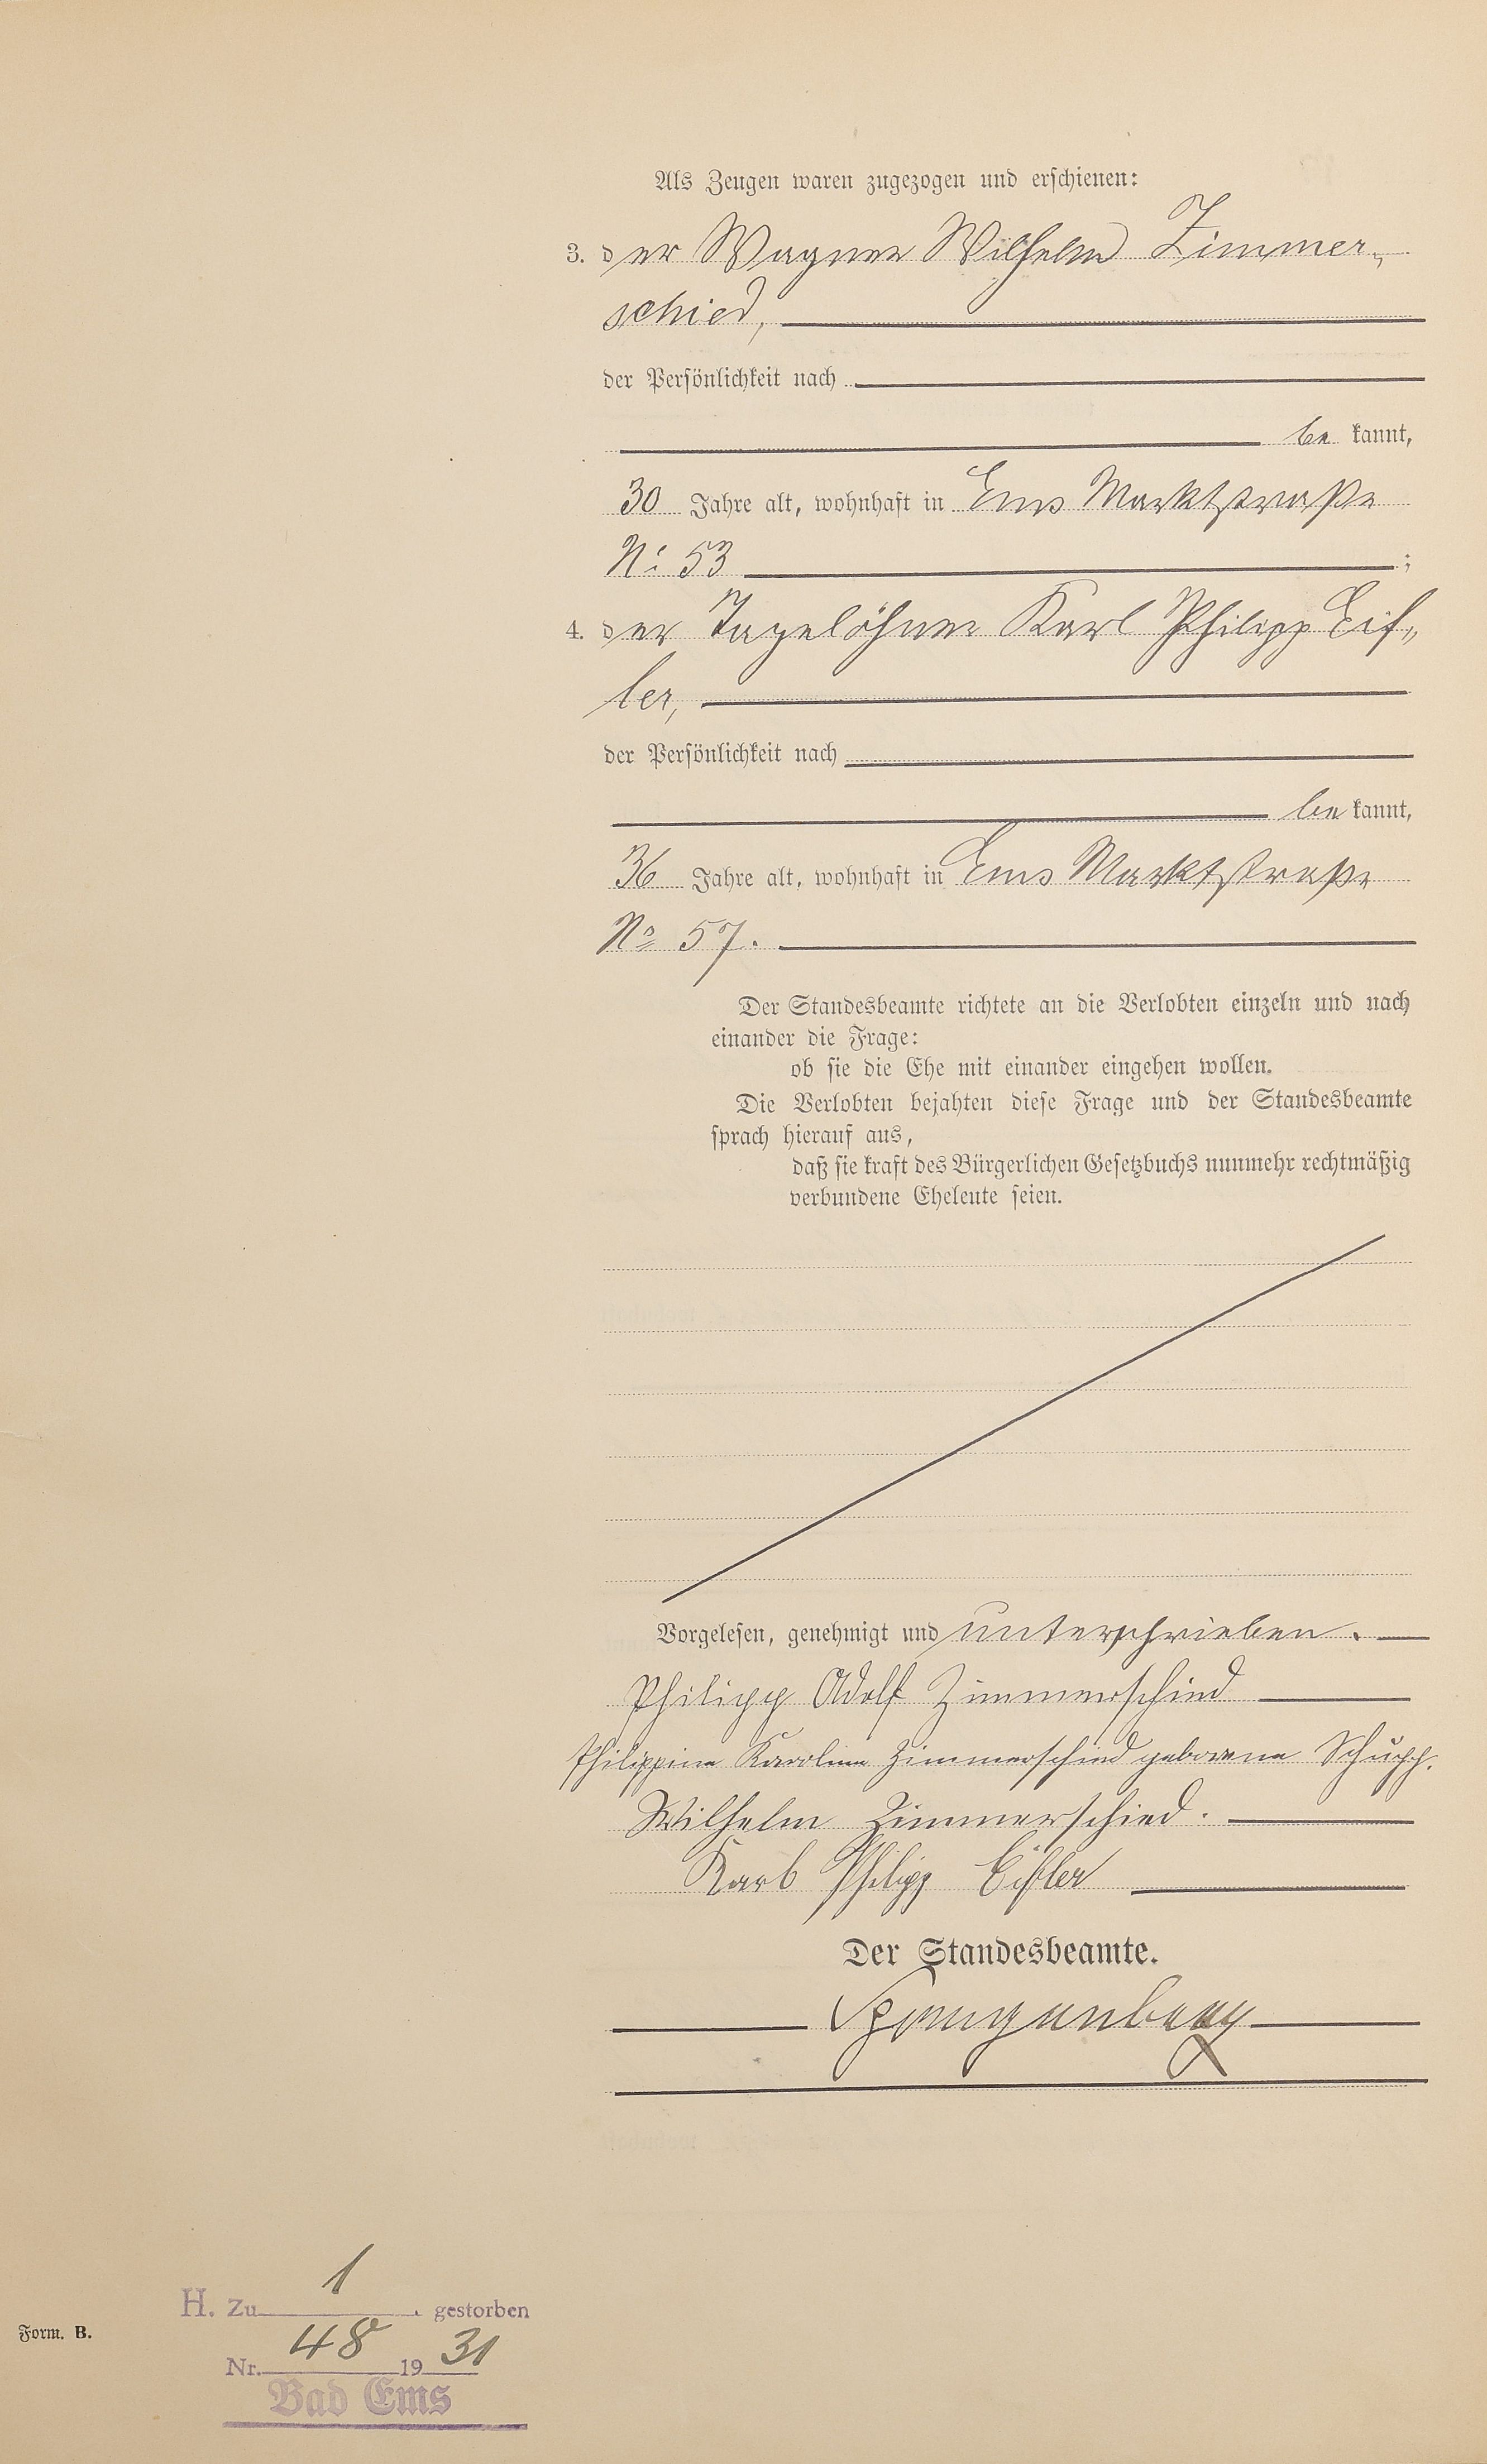 Als Zeugen waren zugezogen und erschienen:
3. der Wagner Wilhelm Zimmer„
schied,
der Persönlichkeit nach
be kannt,
30 Jahre alt, wohnhaft in Ems Marktstraße
N: 53 ;
4. der Tagelöhner Karl Philipp Eif„
ler,
der Persönlichkeit nach
be kannt,
36 Jahre alt, wohnhaft in Ems Marktstraße
No 57.
Der Standesbeamte richtete an die Verlobten einzeln und nach
einander die Frage:
ob sie die Ehe mit einander eingehen wollen.
Die Verlobten bejahten diese Frage und der Standesbeamte
sprach hierauf aus,
daß sie kraft des Bürgerlichen Gesetzbuchs nunmehr rechtmäßig
verbundene Eheleute seien.
Vorgelesen, genehmigt und unterschrieben.
Philipp Adolf Zimmerschied
Philippine Karoline Zimmerschied geborene Schupp.
Wilhelm Zimmerschied.
Karl Philipp Eifler
Der Standesbeamte.
Spangenberg
H. Zu 1. gestorben
Form. B.
Nr. 48 1931
Bad Ems